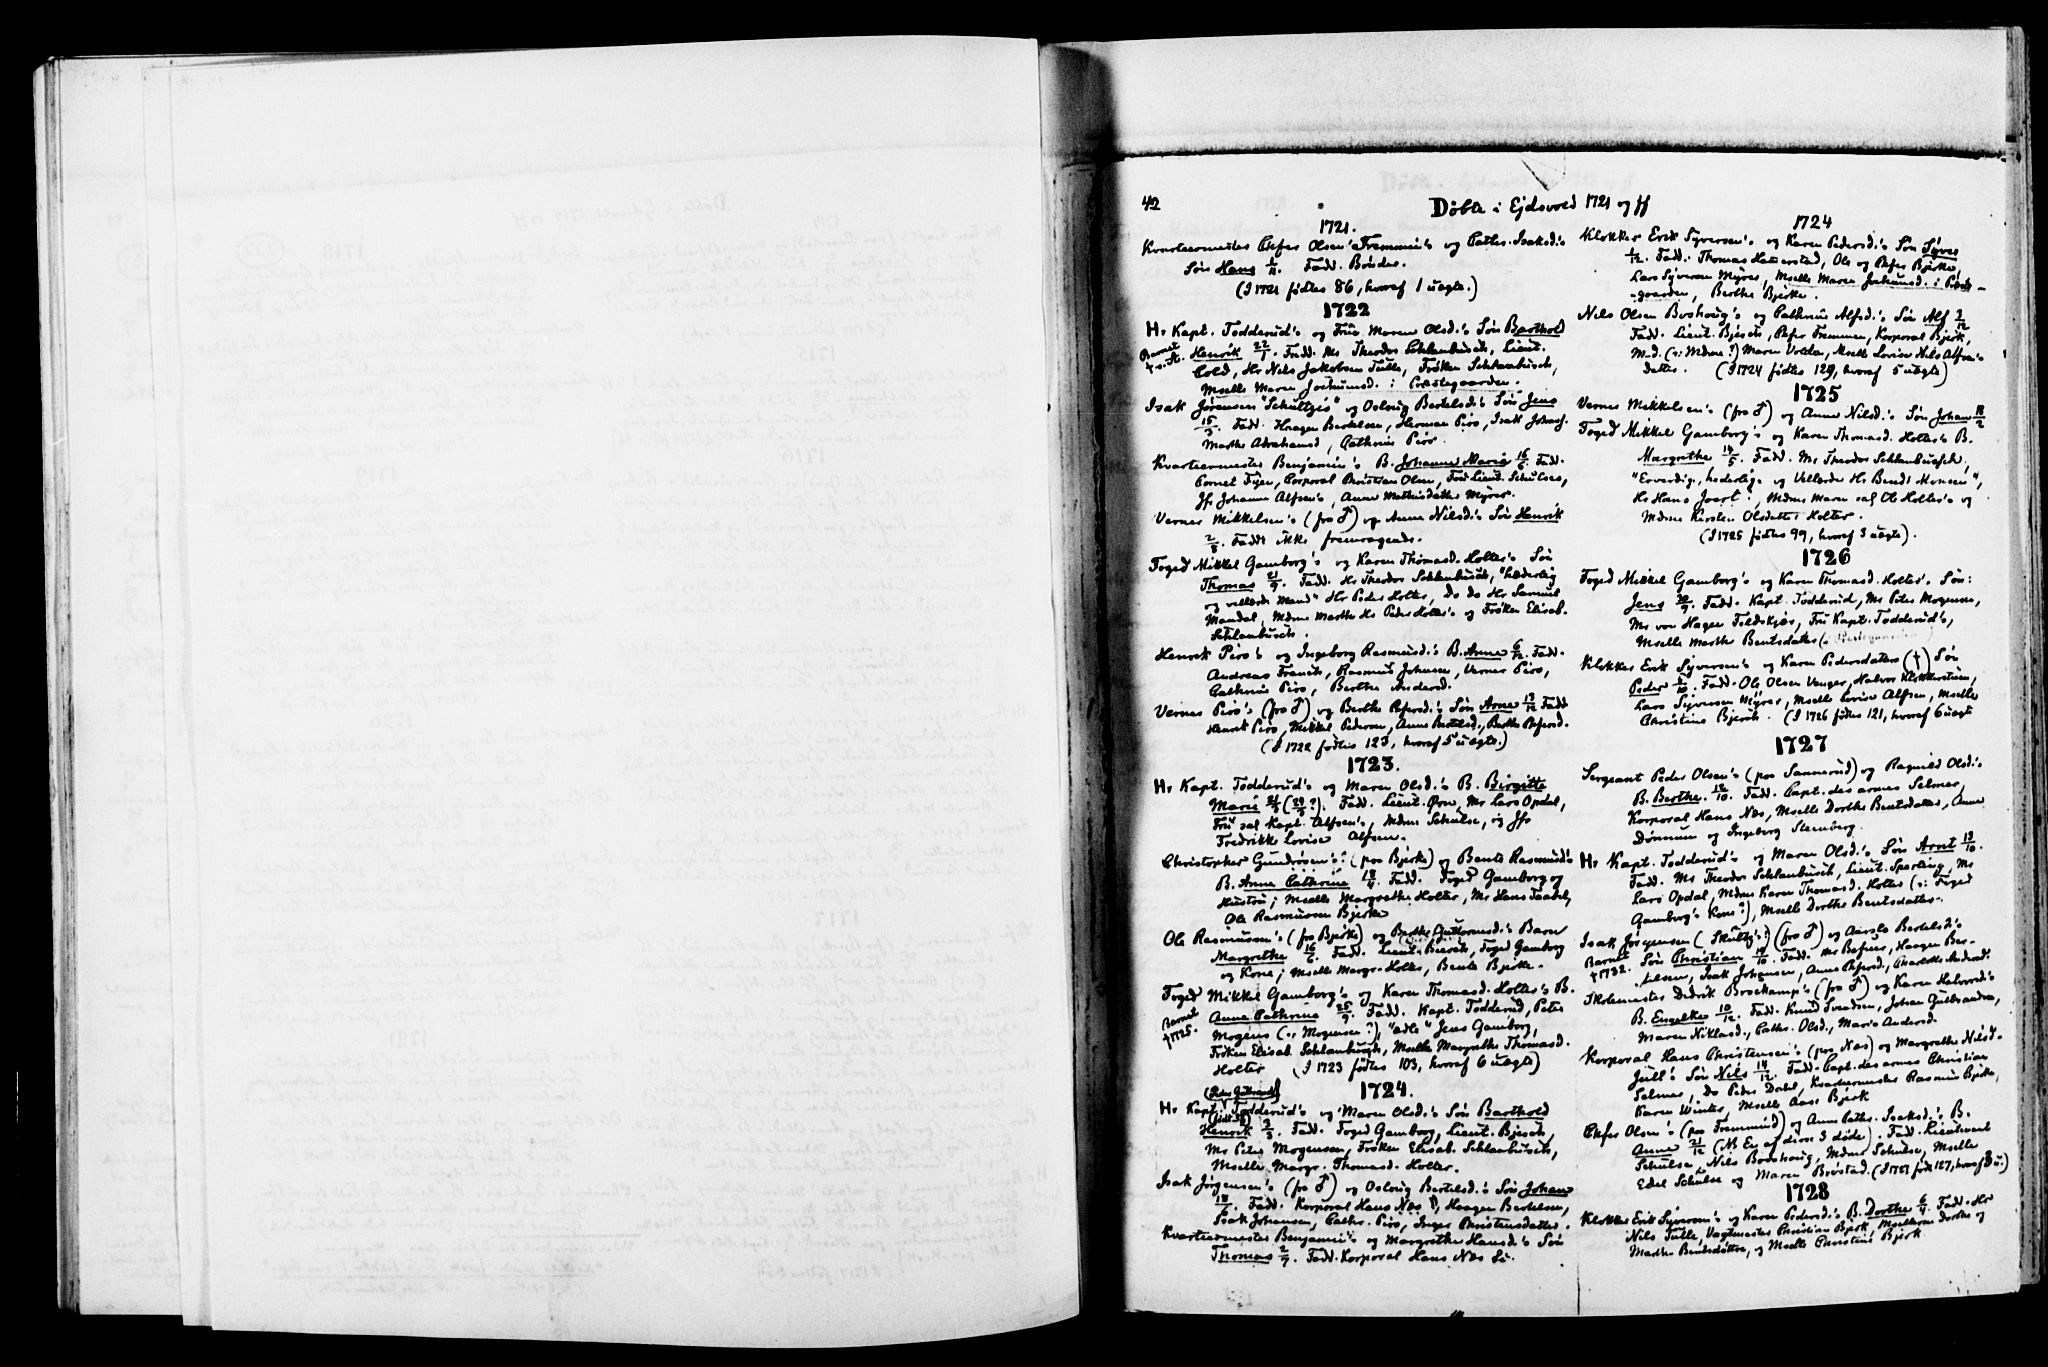 42
Døbte i Ejdsvold 1721 og ff
1721.
Kvarteermester Peper Olsen Fremmin's og Cathr. Isaksd.'s
Søn Hans 1/11. Fadd. Bønder.
(I 1721 fødtes 86, hvoraf 1 uægte.)
1722
Hr Kapt. Todderud's og Frue Maren Olsd.'s Søn Barthold
Barnet Henrik 22/1. Fadd. Mr Theodor Schlanbusch, Lieut.
Cold, Hr Nils Jakobsen Tulle, Frøken Schlanbusch,
Mselle Maren Jochumsd. i Præstegaarden.
Isak Jørgensen "Schultzis" og Oslaug Bertelsd.'s Søn Jens
15/3. Fadd. Haagen Bertelsen, Herman Pirs, Isak Johnsf.
Marthe Abrahamsd, Cathrine Pirs.
Kvarteermester Benjamin's B. Johanne Marie 16/6. Fadd.
Cornet Fyen, Corporal Christian Olsen, Frue Lieut. Schulses,
Jfr Johanne Alfsen's, Anne Mathisdatter Myrer.
Verner Mikkelsen's (fra ♂) og Anne Nilsd.'s Søn Henrik
2/8. Fadd. ikke fremragende.
Foged Mikkel Gamborg's og Karen Thomasd. Holter's Søn
Thomas 21/9. Fadd. Hr Theodor Schlanbusch, "hæderlig
og vellærde Mand" Hr Peder Holter, Do do Hr Samuel
Mandal, Mdme Marthe Hr Peder Holter's og Frøken Elisab.
Schlanbusch.
Henrik Pirs's og Ingeborg Rasmusd.'s B. Anne 6/12. Fadd.
Andreas Franck, Rasmus Johnsen, Verner Pirs,
Cathrine Pirs, Berthe Andersd.
Verner Pirs's (fra ♂) og Berthe Pefersd.'s Søn Arne 13/12 Fadd
Henrik Pirs, Mikkel Pedersen, Anne Bertelsd, Berthe Pefersd.
(I 1722 fødtes 123, hvoraf 5 uægte.)
1723.
Hr Kapt. Todderud's og Maren Olsd.'s B. Birgitte
Marie (?). Fadd. Lieut. Ørn, Mr Lars Opdal,
Frue sal Kapt. Alfsen's, Mdme Schulse, og Jfr
Fredrikke Lovise Alfsen.
Christopher Gundersen's (paa Bjerke) og Bente Rasmusd's
B. Anne Cathrine 18/4. Fadd. Foged Gamborg og
Hustru, Mselle Margrethe Holter, Mr Hans Taabel,
Ole Rasmussen Bjerke
Ole Rasmussen's (fra Bjerke) og Berthe Guttormsd.'s Barn
Margrethe 16/6. Fadd. Lieut. Bjersch, Foged Gamborg
og Kone, Mselle Margr. Holter, Bente Bjerke.
Foged Mikkel Gamborg's og Karen Thomasd. Holter's B.
Barnet † 1725. Anne Cathrine 25/9. Fadd. Kapt. Todderud, Peter
Mogens (ɔ: Mogensen?), "edle" Jens Gamborg,
Frøken Elisab. Schlanbusch, Mselle Margrethe Thomasd.
Holter (I 1723 fødtes 103, hvoraf 6 uægte)
1724.
Hr Kapt. Todderud's og Maren Olsd.'s Søn Barthold
Henrik 2/3. Fadd. Foged Gamborg, Lieut. Bjesch,
Mr Peter Mogensen, Frøken Elisab. Schlanbusch,
Mselle Margr. Thomasd. Holter.
Isak Jørgensen's (fra ♂) og Oslaug Bertelsd.'s Søn Johan
18/6. Fadd. Korporal Hans Næs, Haagen Bertelsen,
Isak Johansen, Cathr. Pirs, Inger Christensdatter.
Kvarteermester Benjamin's og Margrethe Hansd.'s Søn
Thomas 2/7. Fadd. Korporal Hans Næs &c.
1724
Klokker Erik Syversen's og Karen Pedersd.'s Søn Syver
1/12. Fadd. Thomas Haverstad, Ole og Pefer Bjerke,
Lars Syversen Myrer, Mselle Maren Jochumsd. i Præste-
-gaarden, Berthe Bjerke.
Nils Olsen Boshoug's og Cathrine Alfsd.'s Søn Alf 3/12
Fadd. Lieut. Bjesch, Pefer Fremmen, Korporal Bjerk,
M-d. (ɔ: Mdme?) Maren Volda, Mselle Lovise Nils Alfsn's
datter. (I 1724 fødtes 129, hvoraf 5 uægte)
1725
Verner Mikkelsen's (fra ♂) og Anne Nilsd.'s Søn Johan 18/2
Foged Mikkel Gamborg's og Karen Thomasd. Holter's B.
Margrethe 14/5. Fadd. Mr Theodor Schlanbusch,
"Ærværdig, hæderlig og Vellærde Hr Bendt Monsen",
Hr Hans Joert, Mdme Maren sal Ole Holter's og
Mdme Kirsten Olsdatter Holter.
(I 1725 fødtes 99, hvoraf 3 uægte).
1726
Foged Mikkel Gamborg's og Karen Thomasd. Holter's Søn:
Jens 22/9. Fadd. Kapt. Todderud, Mr Peter Mogensen,
Mr von Hagen Feldskjær, Fru Kapt. Todderud's,
Mselle Marthe Bentsdatter
Klokker Erik Syversen's og Karen Pedersdatters (†) Søn
Peder 5/10. Fadd. Ole Olsen Vanger, Halvor Klokkerstuen,
Lars Syversen Myrer, Mselle Lovise Alfsen, Mselle
Christine Bjerk. (I 1726 fødtes 121, hvoraf 6 uægt
1727
Sergeant Peder Olsen's (paa Sannerud) og Ragnild Olsd.'s
B. Berthe 12/10. Fadd. Capt. des armes Selmer,
Korporal Hans Næs, Mselle Dorthe Bentsdatter, Anne
Dønnum og Ingeborg Steenberg.
Hr Kapt. Todderud's og Maren Olsd.'s Søn Arnt 19/10.
Fadd. Mr Theodor Schlanbusch, Lieut. Sperling, Mr
Lars Opdal, Mdme Karen Thomasd. Holter (ɔ: Foged
Gamborg's Kone?), Mselle Dorthe Bentsdatter.
Isak Jørgensen (Skultz's?) (fra ♂) og Aarols Bertelsd's
Barnet † 1732. Søn Christian 19/10. Fadd. Mr Bafuer, Haagen Ber-
telsen, Isak Johansen, Anne Pefersd, Charlotte Andersd.
Skolemester Didrik Brockamp's (fra ♂) og Karen Halvorsd's
B. Engelke 10/12. Fadd. Knud Svendsen, Johan Gulbrandsen,
Maren Niklasd., Cathr. Olsd., Marie Andersd.
Korporal Hans Christensen's (paa Næs) og Margrethe Nilsd.
Juul's Søn Nils 14/12. Fadd. Capt. des armes Christian
Selmer, Do Peder Dahl, Kvarteermester Rasmus Bjerke,
Karen Winter, Mselle Aase Bjerk
Pefer Olsen's (paa Fremmind) og Anne Cathr. Isaksd.'s B.
Anne 21/12 (NB En af disse 3 døde). Fadd. Lieutenant
Schulse, Nils Boshoug, Mdme Schulse, Mselle
Edel Schulse og Maren Brøstad. (I 1727 født 127, hvoraf 3 u.)
1728
Klokker Erik Syversen's og Karen Pedersd.'s B. Dorthe 6/4. Fadd. Hr
Nils Tulle, Vagtmester Christian Bjerk, Mselleerne Dorthe og
Marthe Bentsdøttre, og Mselle Christine Bjerk